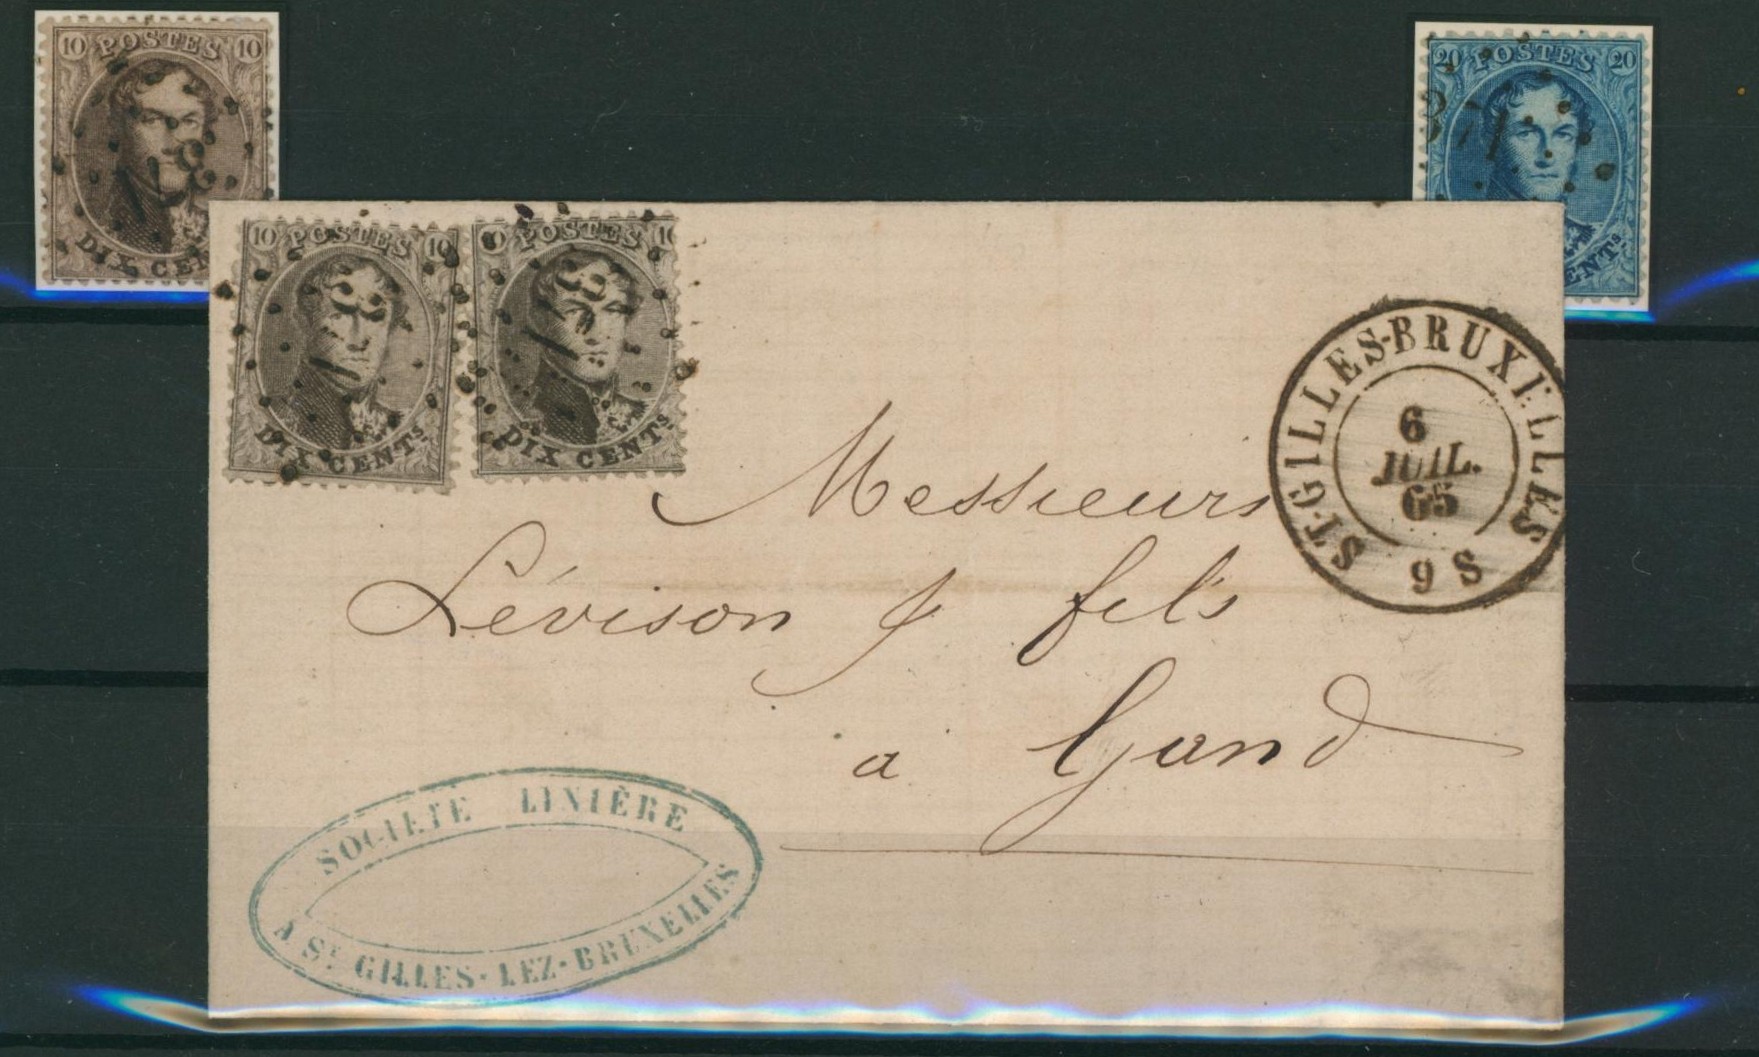 10 POSTES 10
DIX CEN
20 POSTES 20
371
ENTS.
10 POSTES 10
DIX CENTS.
POSTES
DIX CENTS.
ST-GILLES-BRUXELLES
6
JUIL.
65
9 S
Messieurs
Lévison & fils
a Gand
SOCIÉTÉ LINIÈRE
A ST. GILLES-LEZ-BRUXELLES